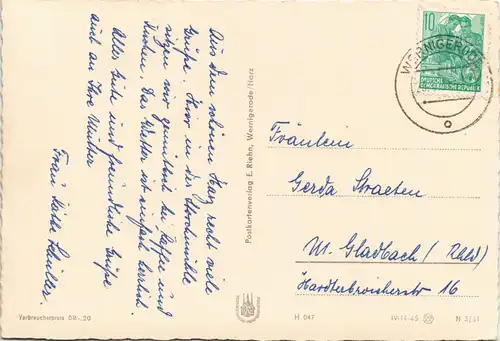 Aus dem schönen Harz recht viele
Grüße. Hier in der Storchmühle
sitzen wir gemütlich bei Kaffee und
Kuchen. Das Wetter ist einfach herrlich.
Alles Gute und freundliche Grüße
auch an Ihre Mutter
Frau Käthe Schüller.
Postkartenverlag E. Riehn, Wernigerode/Harz
10
DEUTSCHE
DEMOKRATISCHE REPUBLIK
WERNIGERODE
Fräulein
Gerda Straeten
M. Gladbach (Rhld)
Hardterbroicherstr 16
Verbraucherpreis DM -,20
H 047
IV-14-45
N 3/61